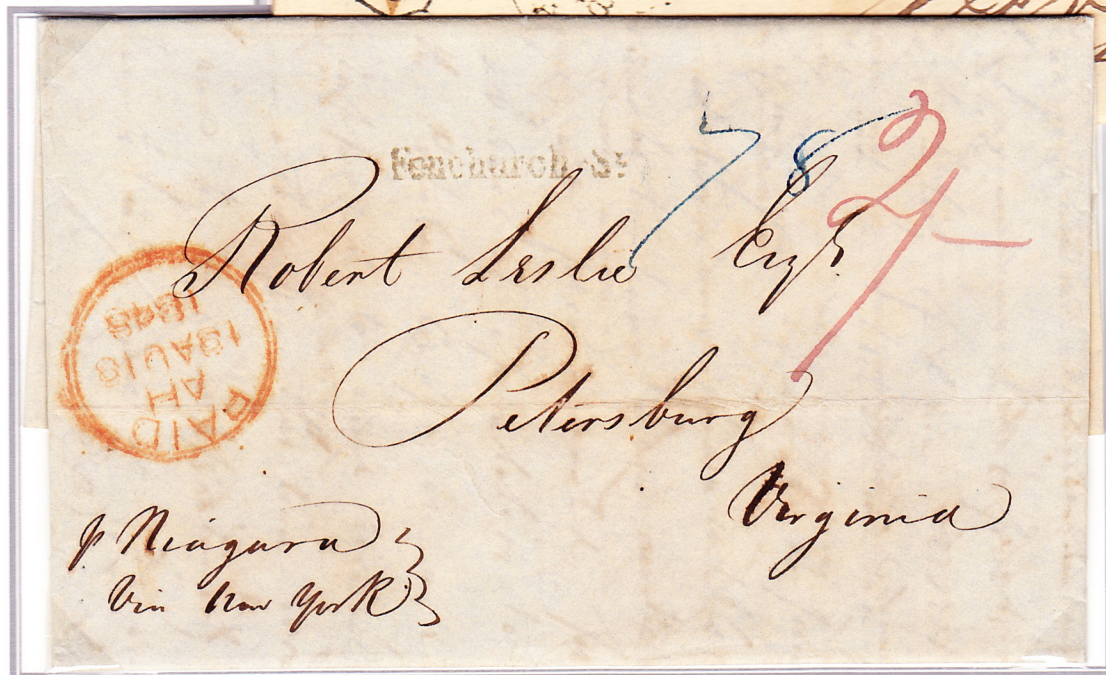 Fenchurch St
7 8 2/-
Robert Leslie Esqr.
Petersburg
Virginia
PAID
AH
18AU18
1848
p Niagara
Via New York